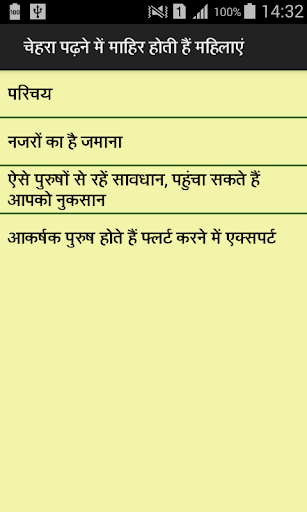 100 1 100% 14:32
चेहरा पढ़ने में माहिर होती हैं महिलाएं
परिचय
नजरों का है जमाना
ऐसे पुरुषों से रहें सावधान, पहुंचा सकते हैं
आपको नुकसान
आकर्षक पुरुष होते हैं फ्लर्ट करने में एक्सपर्ट